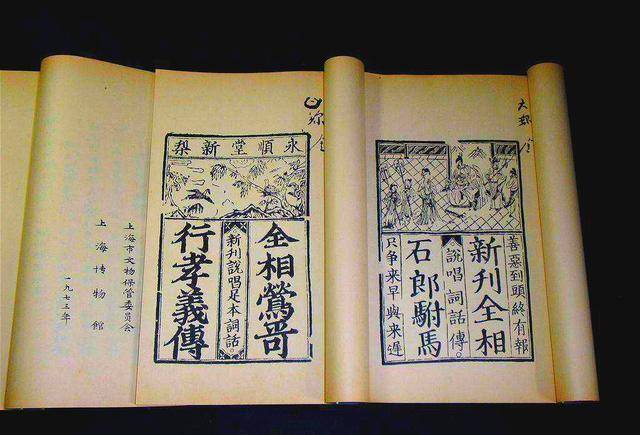 善惡到頭終有報
新刊全相
說唱詞話傳。
石郎駙馬
只爭来早與来遲
永順堂新梨
全相鶯哥
新刊說唱足本詞話。
行孝義傳
上海市文物保管委員会
上海博物館
一九七三年